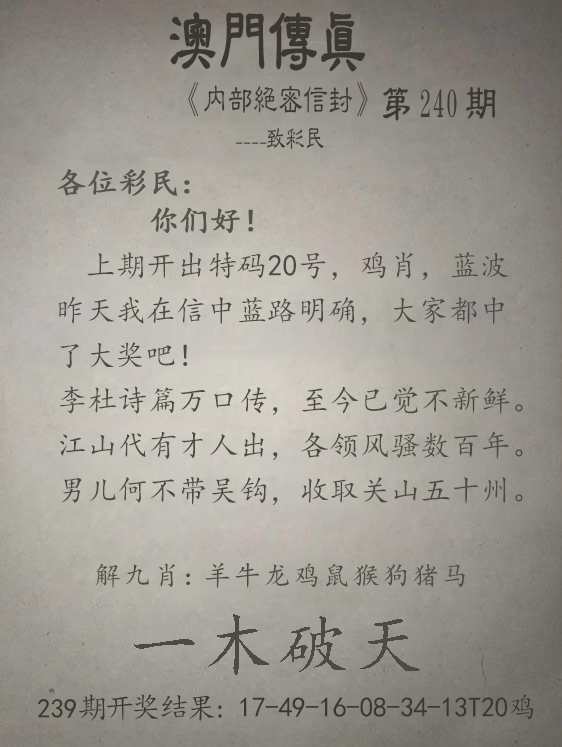 澳門傳真
《内部絕密信封》第240期
----致彩民
各位彩民：
你们好！
上期开出特码20号，鸡肖，蓝波
昨天我在信中蓝路明确，大家都中
了大奖吧！
李杜诗篇万口传，至今已觉不新鲜。
江山代有才人出，各领风骚数百年。
男儿何不带吴钩，收取关山五十州。
解九肖：羊牛龙鸡鼠猴狗猪马
一木破天
239期开奖结果：17-49-16-08-34-13T20鸡